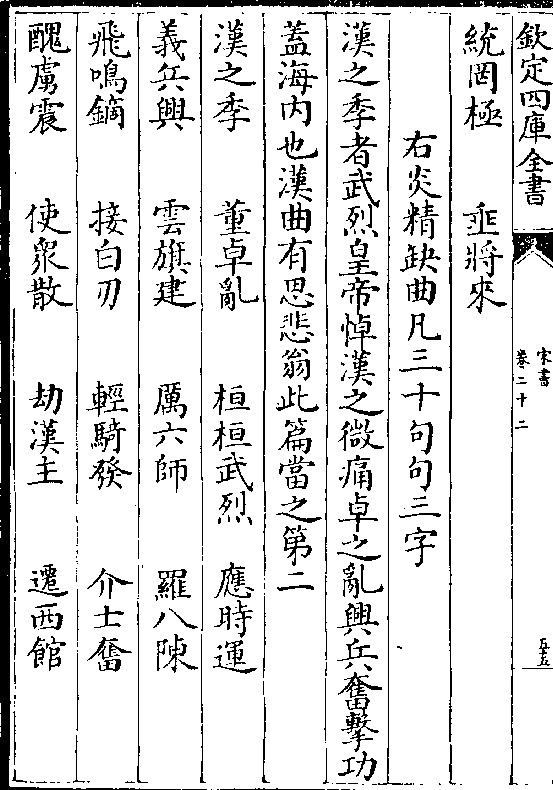 欽定四庫全書
宋書
卷二十二
五十五
統罔極 垂將來
右炎精缺曲凡三十句句三字
漢之季者武烈皇帝悼漢之微痛卓之亂興兵奮擊功
蓋海内也漢曲有思悲翁此篇當之第二
漢之季 董卓亂 桓桓武烈 應時運
義兵興 雲旗建 厲六師 羅八陳
飛鳴鏑 接白刃 輕騎發 介士奮
醜虜震 使衆散 劫漢主 遷西館